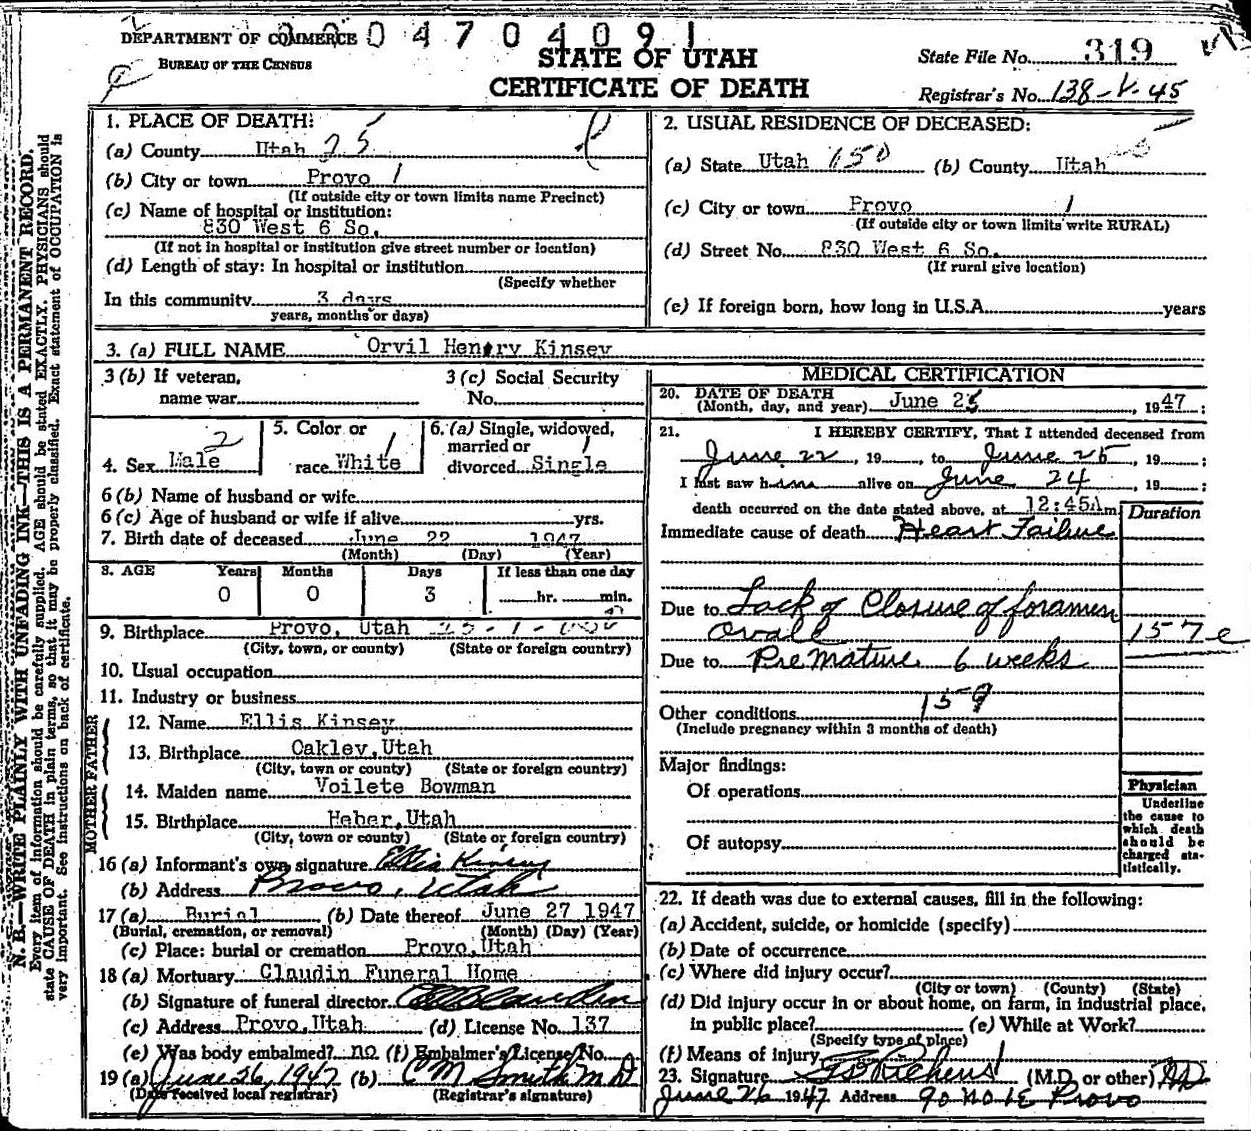 DEPARTMENT OF COMMERCE 0 4 7 0 4 0 9 1
BUREAU OF THE CENSUS
STATE OF UTAH
CERTIFICATE OF DEATH
State File No. 319
Registrar's No. 138-V-45
N. B.—WRITE PLAINLY WITH UNFADING INK—THIS IS A PERMANENT RECORD.
Every item of information should be carefully supplied. AGE should be stated EXACTLY. PHYSICIANS should
state CAUSE OF DEATH in plain terms, so that it may be properly classified. Exact statement of OCCUPATION is
very important. See instructions on back of certificate.
1. PLACE OF DEATH:
(a) County Utah 25
(b) City or town Provo 1
(If outside city or town limits name Precinct)
(c) Name of hospital or institution:
830 West 6 So.
(If not in hospital or institution give street number or location)
(d) Length of stay: In hospital or institution
(Specify whether
In this community 3 days
years, months or days)
2. USUAL RESIDENCE OF DECEASED:
(a) State Utah 150 (b) County Utah
(c) City or town Provo 1
(If outside city or town limits write RURAL)
(d) Street No. 830 West 6 So.
(If rural give location)
(e) If foreign born, how long in U.S.A. years
3. (a) FULL NAME Orvil Henry Kinsey
3 (b) If veteran, 3 (c) Social Security
name war No.
4. Sex Male 2
5. Color or
race White 1
6. (a) Single, widowed,
married or 1
divorced Single
6 (b) Name of husband or wife
6 (c) Age of husband or wife if alive yrs.
7. Birth date of deceased June 22 1947
(Month) (Day) (Year)
8. AGE Years Months Days If less than one day
0 0 3 hr. min.
9. Birthplace Provo, Utah
(City, town, or county) (State or foreign country)
10. Usual occupation
11. Industry or business
FATHER
12. Name Ellis Kinsey
13. Birthplace Oakley, Utah
(City, town or county) (State or foreign country)
MOTHER
14. Maiden name Voilete Bowman
15. Birthplace Heber, Utah
(City, town or county) (State or foreign country)
16 (a) Informant's own signature Ellis Kinsey
(b) Address Provo, Utah
17 (a) Burial (b) Date thereof June 27 1947
(Burial, cremation, or removal) (Month) (Day) (Year)
(c) Place: burial or cremation Provo, Utah
18 (a) Mortuary Claudin Funeral Home
(b) Signature of funeral director
(c) Address Provo, Utah (d) License No. 137
(e) Was body embalmed? no (f) Embalmer's License No.
19 (a) June 26, 1947 (b) C M Smith M D
(Date received local registrar) (Registrar's signature)
MEDICAL CERTIFICATION
20. DATE OF DEATH
(Month, day, and year) June 25, 1947;
21. I HEREBY CERTIFY, That I attended deceased from
June 22, 19 to June 25, 19 ;
I last saw him alive on June 24, 19 ;
death occurred on the date stated above, at 12:45A m.
Duration
Immediate cause of death Heart Failure
Due to Lack of Closure of foramen
Ovale 157e
Due to Premature 6 weeks
159
Other conditions
(Include pregnancy within 3 months of death)
Major findings:
Of operations
Of autopsy
Physician
Underline
the cause to
which death
should be
charged sta-
tistically.
22. If death was due to external causes, fill in the following:
(a) Accident, suicide, or homicide (specify)
(b) Date of occurrence
(c) Where did injury occur?
(City or town) (County) (State)
(d) Did injury occur in or about home, on farm, in industrial place,
in public place? (e) While at Work?
(Specify type of place)
(f) Means of injury
23. Signature (M.D. or other) MD
June 26 1947 Address 90 No 1 E Provo